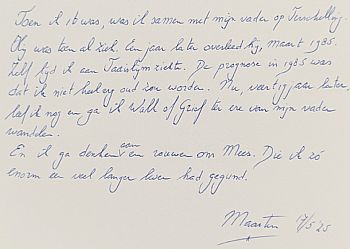 Toen ik 16 was, was ik samen met mijn vader op Terschelling.
Hij was toen al ziek. Een jaar later overleed hij, maart 1985.
Zelf lijd ik aan Taaislijmziekte. De prognose in 1985 was
dat ik niet heel erg oud zou worden. Nu, veertig jaar later,
leef ik nog en ga ik Walk of Grief ter ere van mijn vader
wandelen.
En ik ga denken aan en rouwen om Mees. Die ik zó
enorm een veel langer leven had gegund.
Maarten 17/5 25